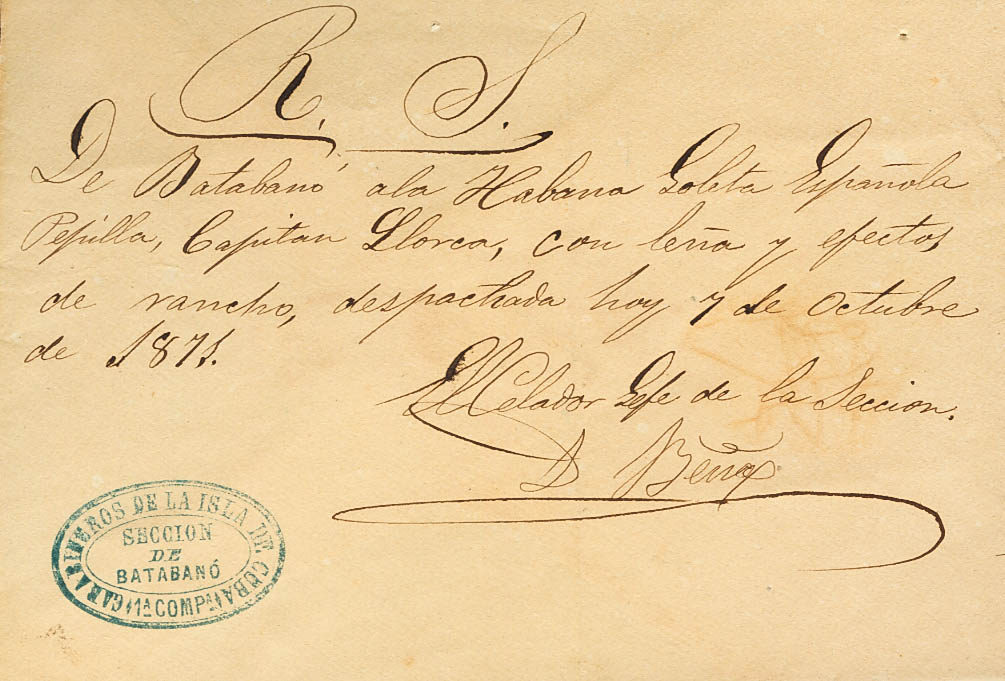 R. S.
De Batabanó a la Habana Goleta Española
Pepilla, Capitan Llorca, con leña y efectos
de rancho, despachada hoy 7 de Octubre
de 1871.
El Celador Gefe de la Seccion.
CARABINEROS DE LA ISLA DE CUBA
SECCION
DE
BATABANÓ
1ª COMPª